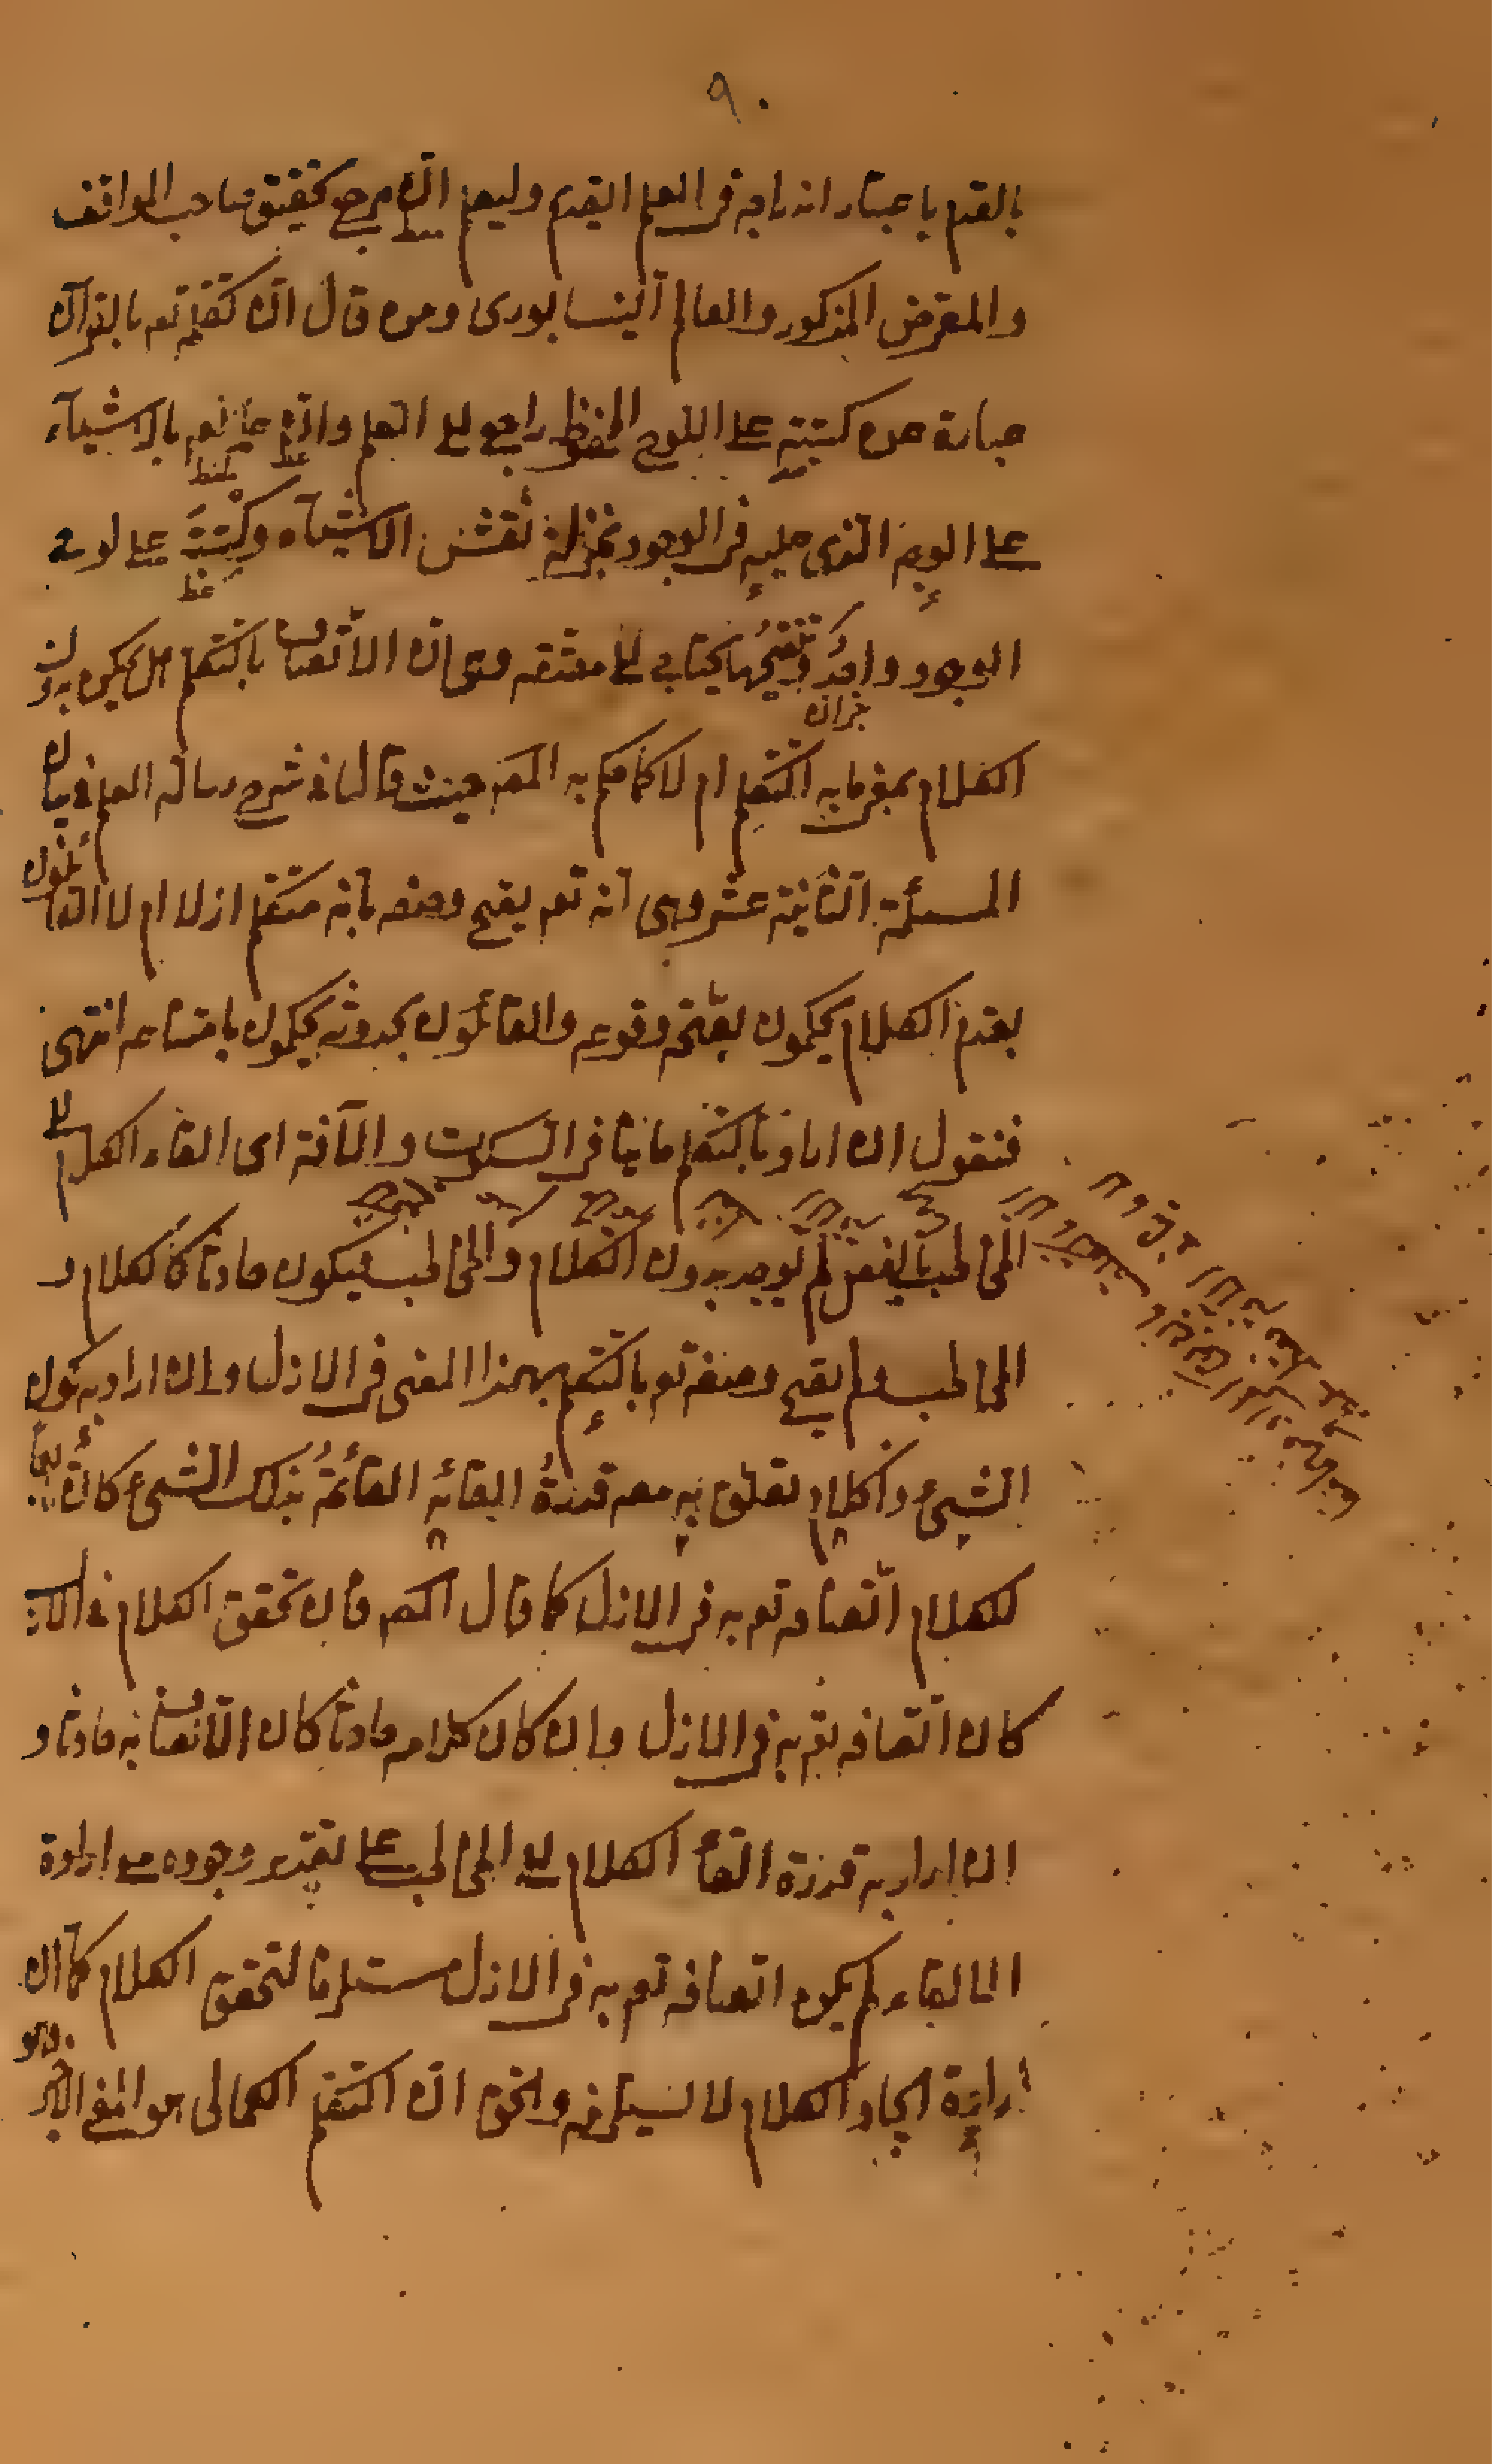 ٩٠
بالقدم باعتبار اندراجه في العلم القديم وليعلم انّ مرجع تحقيق صاحب المواقف
والمعترض المذكور والعالم النيسابوري ومن قال انّ تكلّمه تعـ بالقرآن
عبارة عن كتبته على اللوح المحفوظ راجع الى العلم وانّ علمه تعـ بالاشيآء
على الوجه الذي عليه في الوجود بمنزلة نقش الاشيآء وكتبته على لوح
الوجود واحدٌ وتنقيحُها يحتاج الى مقدمه وهي انّ الاتّصاف بالتكلم هل يمكن بدون
الكلام بمعنى ما به التكلم ام لا كما حكم به المصـ حيث قال في شرح رسالة العلم في بيان
المسئلة الثانية عشر وهي انه تعـ يصح وصفه بانه متكلم ازلا ام لا القائلون
بقدم الكلام يحكمون بصحّة وقوعه والقائلون بحدوثه يحكمون بامتناعه انتهى
فنقول ان اراد بالتكلم ما ينافي السكوت والآفة اي القاء الكلام الى
المخاطب بالفعل لم يوجد بدون الكلام والمخاطب فيكون حادثا كالكلام و
المخاطب ولم يصح وصفه تعـ بالتكلم بهذا المعنى في الازل وان اراد به كون
الشيئ ذا كلام تعلق به معه قدرةُ القائه القائمةُ بذلك الشيئ كان تابعا
للكلام اتّصافه تعـ به في الازل كما قال المصـ فان تحقق الكلام في الازل
كان اتّصافه تعـ به في الازل وان كان كلامه حادثا كان الاتّصاف به حادثا و
ان اراد به قدرة القآء الكلام الى المخاطب على تقدير وجوده مع ارادة
الالقاء لم يكن اتصافه تعـ به في الازل مستلزما لتحقق الكلام كما ان
ارادة ايجاد الكلام لا تستلزمه والحق انّ التكلم الكمالي هو المعنى الاخير